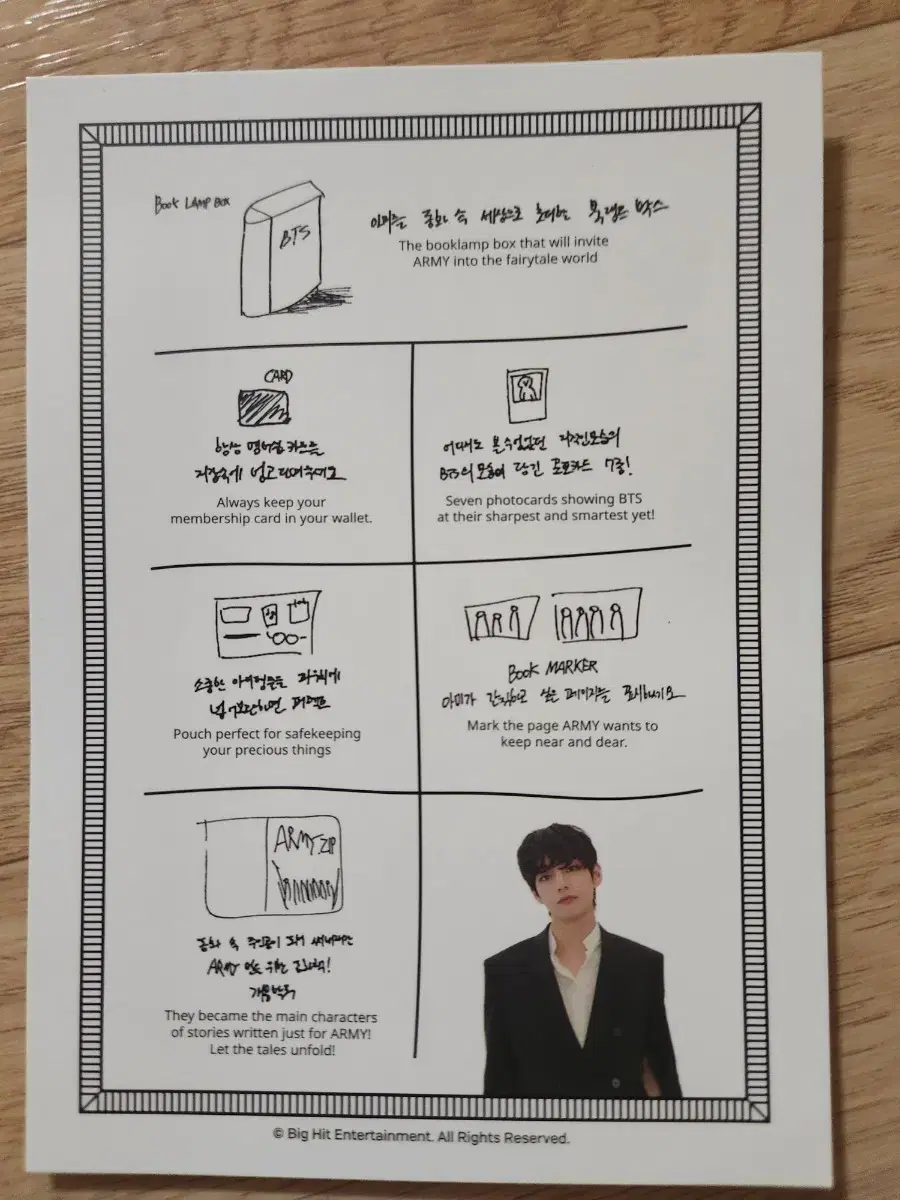 Book LAMP BOX
BTS
아미를 동화 속 세상으로 초대하는 북램프 박스
The booklamp box that will invite
ARMY into the fairytale world
CARD
항상 멤버쉽 카드를
지갑속에 넣고 다녀주세요
Always keep your
membership card in your wallet.
어디서도 볼수없었던 지적인모습의
BTS의 모습이 담긴 포토카드 7종!
Seven photocards showing BTS
at their sharpest and smartest yet!
소중한 아이템들을 파우치에
넣어보관하면 퍼펙트
Pouch perfect for safekeeping
your precious things
Book MARKER
아미가 간직하고 싶은 페이지를 표시하세요
Mark the page ARMY wants to
keep near and dear.
ARMY.ZIP
동화 속 주인공이 되어 써내려간
ARMY 만을 위한
They became the main characters
of stories written just for ARMY!
Let the tales unfold!
© Big Hit Entertainment. All Rights Reserved.